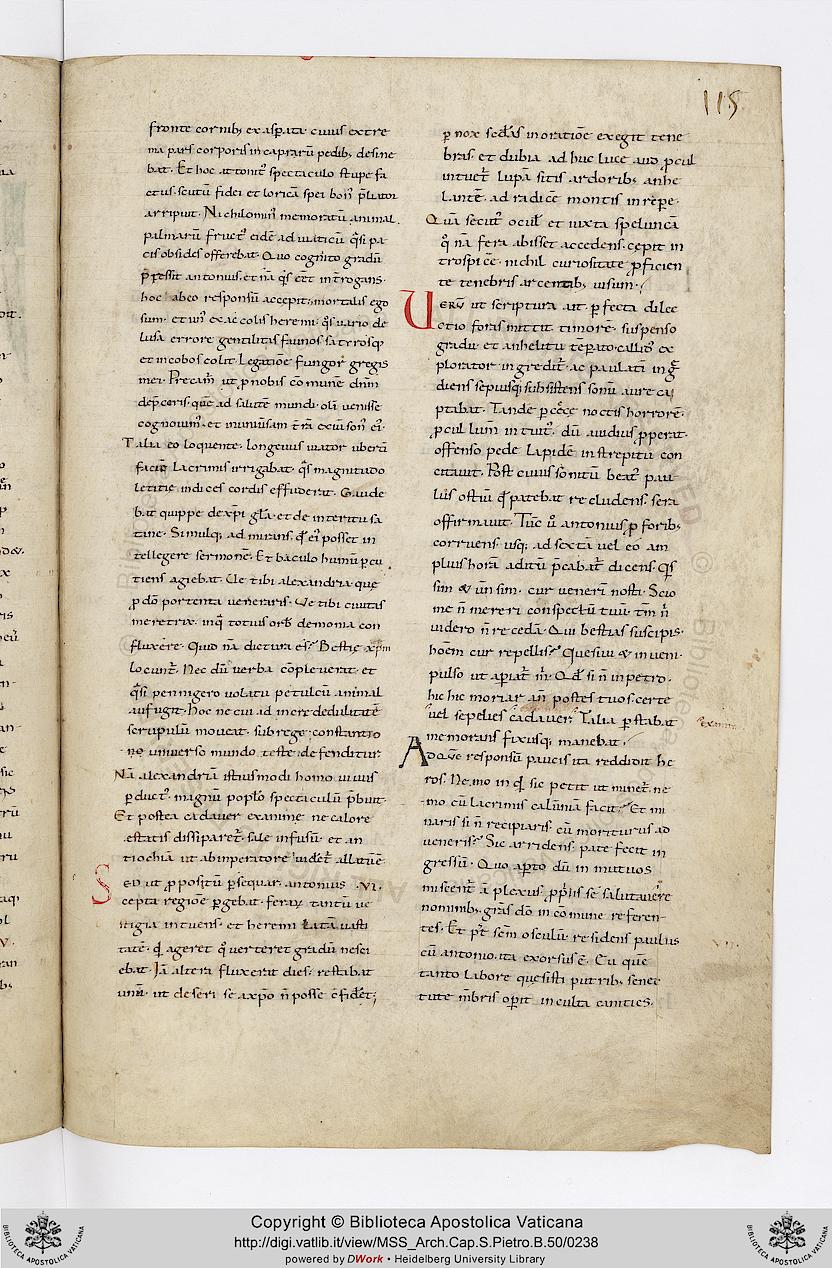 115
fronte cornib; exasperata. cuius extre
ma pars corporis in caprarū pedib; desine
bat. Et hoc attonit᾽ spectaculo stupefa
ctus. scutū fidei et loricā spei bon᾽ p̄liator
arripuit. Nichilomin᾽ memoratū animal.
palmarū fruct᾽ eidē ad uiaticū q̄si pa
cis obsides offerebat. Quo cognito gradū
p̄ressit antonius. et n̄a q̄s ēēt interrogans.
hoc abeo responsū accepit; mortalis ego
sum. et un᾽ ex accolis heremi. q̄s uario de
lusa errore gentilitas faunos satyrosq;
et incobos colit. Legatiōe fungor gregis
mei. Precam᾽ ut p̱ nobis cōmunē dn̄m
dep̄ceris. quē ad salutē mundi. olī uenisse
cognouim᾽. et in uniūsam t̄rā exiuit son᾽ ei᾽.
Talia eo loquente. longeuus uiator ubertī
faciē lacrimis irrigabat. q̄s magnitudo
letitie indices cordis effuderat. Gaude
bat quippe de xp̄i gl̄a. et de interitu sa
tane. Simulq; ad mirans. q̱d ei᾽ posset in
tellegere sermonē. Et baculo humū p̱cu
tiens agiebat. Ue tibi alexandria. que
p̱ dō portenta ueneraris. Ue tibi ciuitas
meretrix. inq̱ totius orb᾽ demonia con
fluxere. Quid n̄a dictura es? Bestie xp̄m
locunt᾽. Nec dū uerba cōpleuerat. et
q̄si pennigero uolatu petulcū animal
aufugit. Hoc ne cui ad incrededulitatē
scrupulū moueat. sub rege constantio
ne uniuerso mundo teste defenditur.
Nā alexandriā istiusmodi homo uiuus
p̱duct᾽. magnū poplo spectaculū p̄buit.
Et postea cadauer exanime ne calore
ęstatis dissiparet᾽. sale infusū. et an
tiochiā ut ab imperatore uideret᾽ allatū ē.
SED ut p̱positū p̱sequar. antonius .VI.
cepta regiōe p̱gebat. ferarū tantū ue
stigia intuens. et heremi latā uasti
tatē. q̱d ageret q̱ uerteret gradū nesci
ebat. Iā altera fluxerat dies. restabat
unū. ut deseri se a xp̄o n̄ posse c̄fidet;
p̱nox scd̄as in oratiōe exegit tene
bras. et dubia ad huc luce. aud p̱cul
intuet᾽ lupā sitis ardorib; anhe
lantē. ad radicē montis inrepe.
Quā secut᾽ ocul᾽ et iuxta speluncā
q̄ n̄a fera abisset accedens. cepit in
trospicē. nichil curiositate p̱ficien
te tenebris arcentib; uisum.
UERŪ ut scriptura ait. p̱fecta dilec
ctio foras mittit timorē. suspenso
gradu et anhelitu tēperato. callid᾽ ex
plorator ingredit᾽. ac paulatī ing̅
diens. sepiusq; subsistens. sonū aure ca
ptabat. Tandē p̱ cęcę noctis horrorē.
p̱cul lum̄ intuit᾽. dū auidius p̱perat.
offenso pede lapidē. in strepitū con
citauit. Post cuius sonitū beat᾽ pau
lus ostiū q̱d patebat recludens. sera
offirmauit. Tūc ū antonius p̱ forib;
corruens. usq; ad sextā uel eo am
plius horā. aditū p̄cabat᾽ dicens. Q̱s
sim & un̄ sim. cur ueneri nosti. Scio
me n̄ mereri conspectū tuū. tm̄ n̄
uidero n̄ recedā. Qui bestias suscipis.
hoēm cur repellis? Quesiui & inueni.
pulso ut aperiat᾽ m̄. Qd̄ si n̄ inpetro.
hic hic moriar an̄ postes tuos. certe
uel sepelies cadauer; Talia p̱stabat
memorans. fixusq; manebat.
ADQUE responsū paucis ita reddidit he
ros. Nemo in q̱d sic petit ut minet᾽. ne
mo cū lacrimis calūniā facit. Et mi
naris si n̄ recipiaris. cū moriturus ad
ueneris? Sic arridens. pate fecit in
gressū. Quo aperto dū in mutuos
miscent᾽ āplexus. p̱priis se salutauere
nominib;. gr̄as dō in cōmune referen
tes. Et p̱t sc̄m osculū. residens paulus
cū antonio. ita exorsus ē. En quē
tanto labore quesisti putrib; senec
tute m̄bris operit inculta canities.
Copyright © Biblioteca Apostolica Vaticana
http://digi.vatlib.it/view/MSS_Arch.Cap.S.Pietro.B.50/0238
powered by DWork • Heidelberg University Library